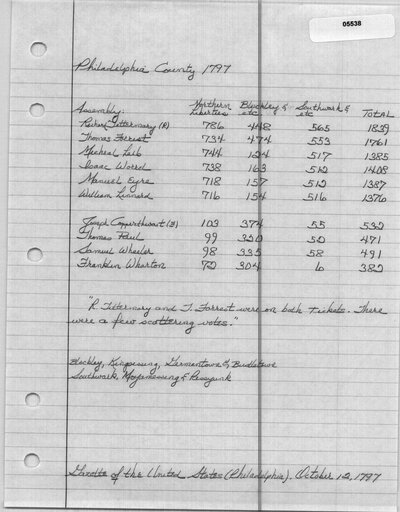 05538
Philadelphia County 1797
Assembly: Northern Liberties Blockley & etc Southwark & etc TOTAL
Richard Tittermary (R) 786 448 565 1839
Thomas Forrest 734 474 553 1761
Micheal Leib 744 124 517 1385
Isaac Worrel 738 163 512 1408
Manuel Eyre 718 157 512 1387
William Linnard 716 154 516 1376
Joseph Copperthwait (F) 103 374 55 532
Thomas Paul 99 320 52 471
Samuel Wheeler 98 335 58 491
Franklin Wharton 72 304 6 382
"R. Tittermary and T. Forrest were on both Tickets. There
were a few scattering votes."
Blockley, Kingsessing, Germantown & Bustletown
Southwark, Moyamensing & Passyunk
Gazette of the United States (Philadelphia). October 12, 1797